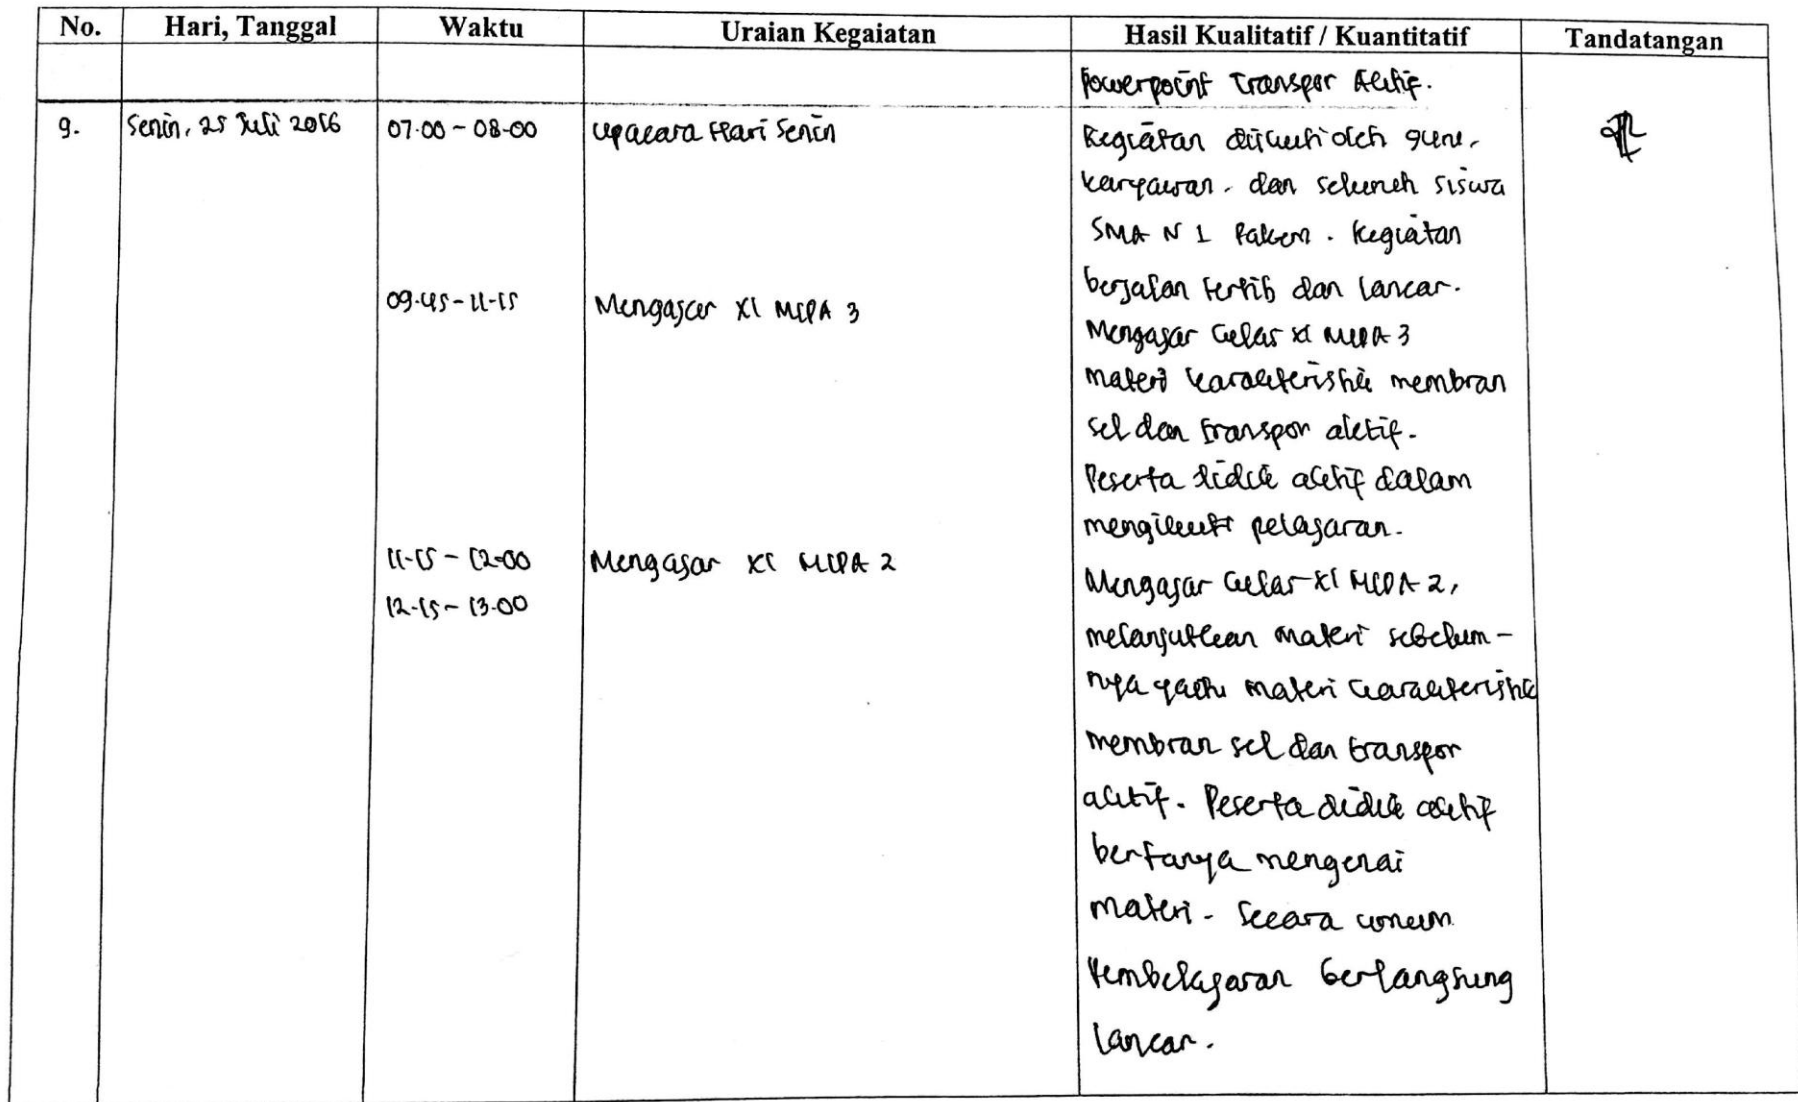 No. Hari, Tanggal Waktu Uraian Kegaiatan Hasil Kualitatif / Kuantitatif Tandatangan
Powerpoint Transpor Aktif.
9. Senin, 25 Juli 2016 07.00 - 08.00 Upacara Hari Senin Kegiatan diikuti oleh guru,
karyawan, dan seluruh siswa
SMA N 1 Pakem. Kegiatan
berjalan tertib dan lancar.
09.45 - 11.15 Mengajar XI MIPA 3
Mengajar kelas XI MIPA 3
materi karakteristik membran
sel dan transpor aktif.
Peserta didik aktif dalam
mengikuti pelajaran.
11.15 - 12.00 Mengajar XI MIPA 2
Mengajar kelas XI MIPA 2,
12.15 - 13.00
melanjutkan materi sebelum-
nya yaitu materi karakteristik
membran sel dan transpor
aktif. Peserta didik aktif
bertanya mengenai
materi. Secara umum
Pembelajaran berlangsung
lancar.